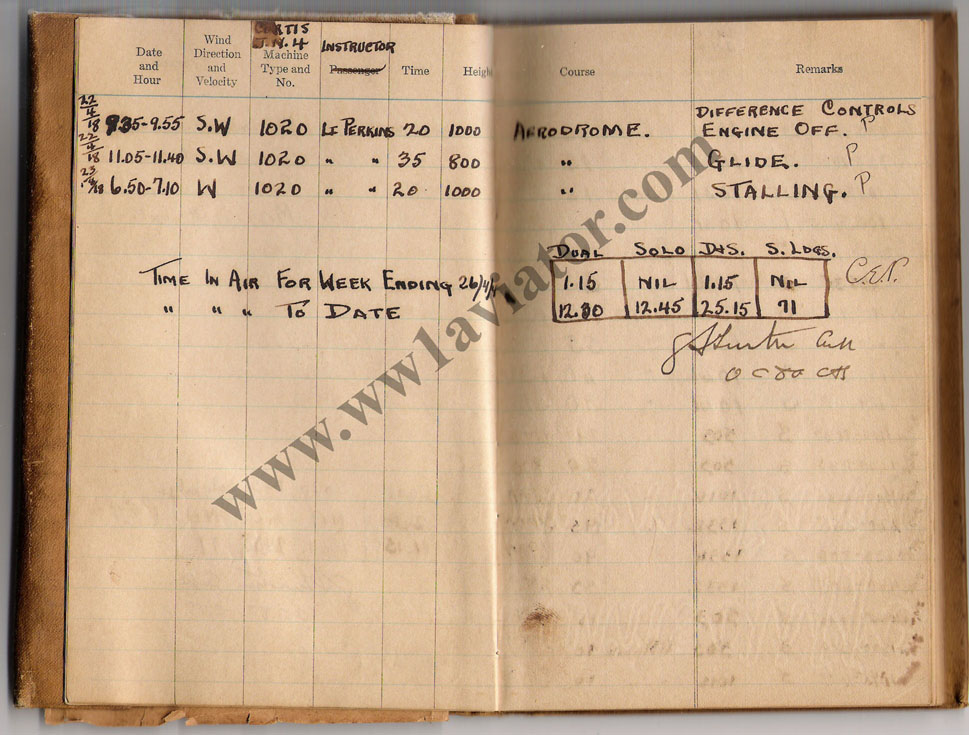 CURTIS
J.N.4
INSTRUCTOR
Date and Hour Wind Direction and Velocity Machine Type and No. Passenger Time Height Course Remarks
22/4/18 9.35-9.55 S.W 1020 Lt PERKINS 20 1000 AERODROME. DIFFERENCE CONTROLS
ENGINE OFF. P
22/4/18 11.05-11.40 S.W 1020 " " 35 800 " GLIDE. P
23/4/18 6.50-7.10 W 1020 " " 20 1000 " STALLING. P
DUAL SOLO D&S. S. LDGS.
TIME IN AIR FOR WEEK ENDING 26/4/18 1.15 NIL 1.15 NIL
" " " TO DATE 12.30 12.45 25.15 71
www.ww1aviator.com